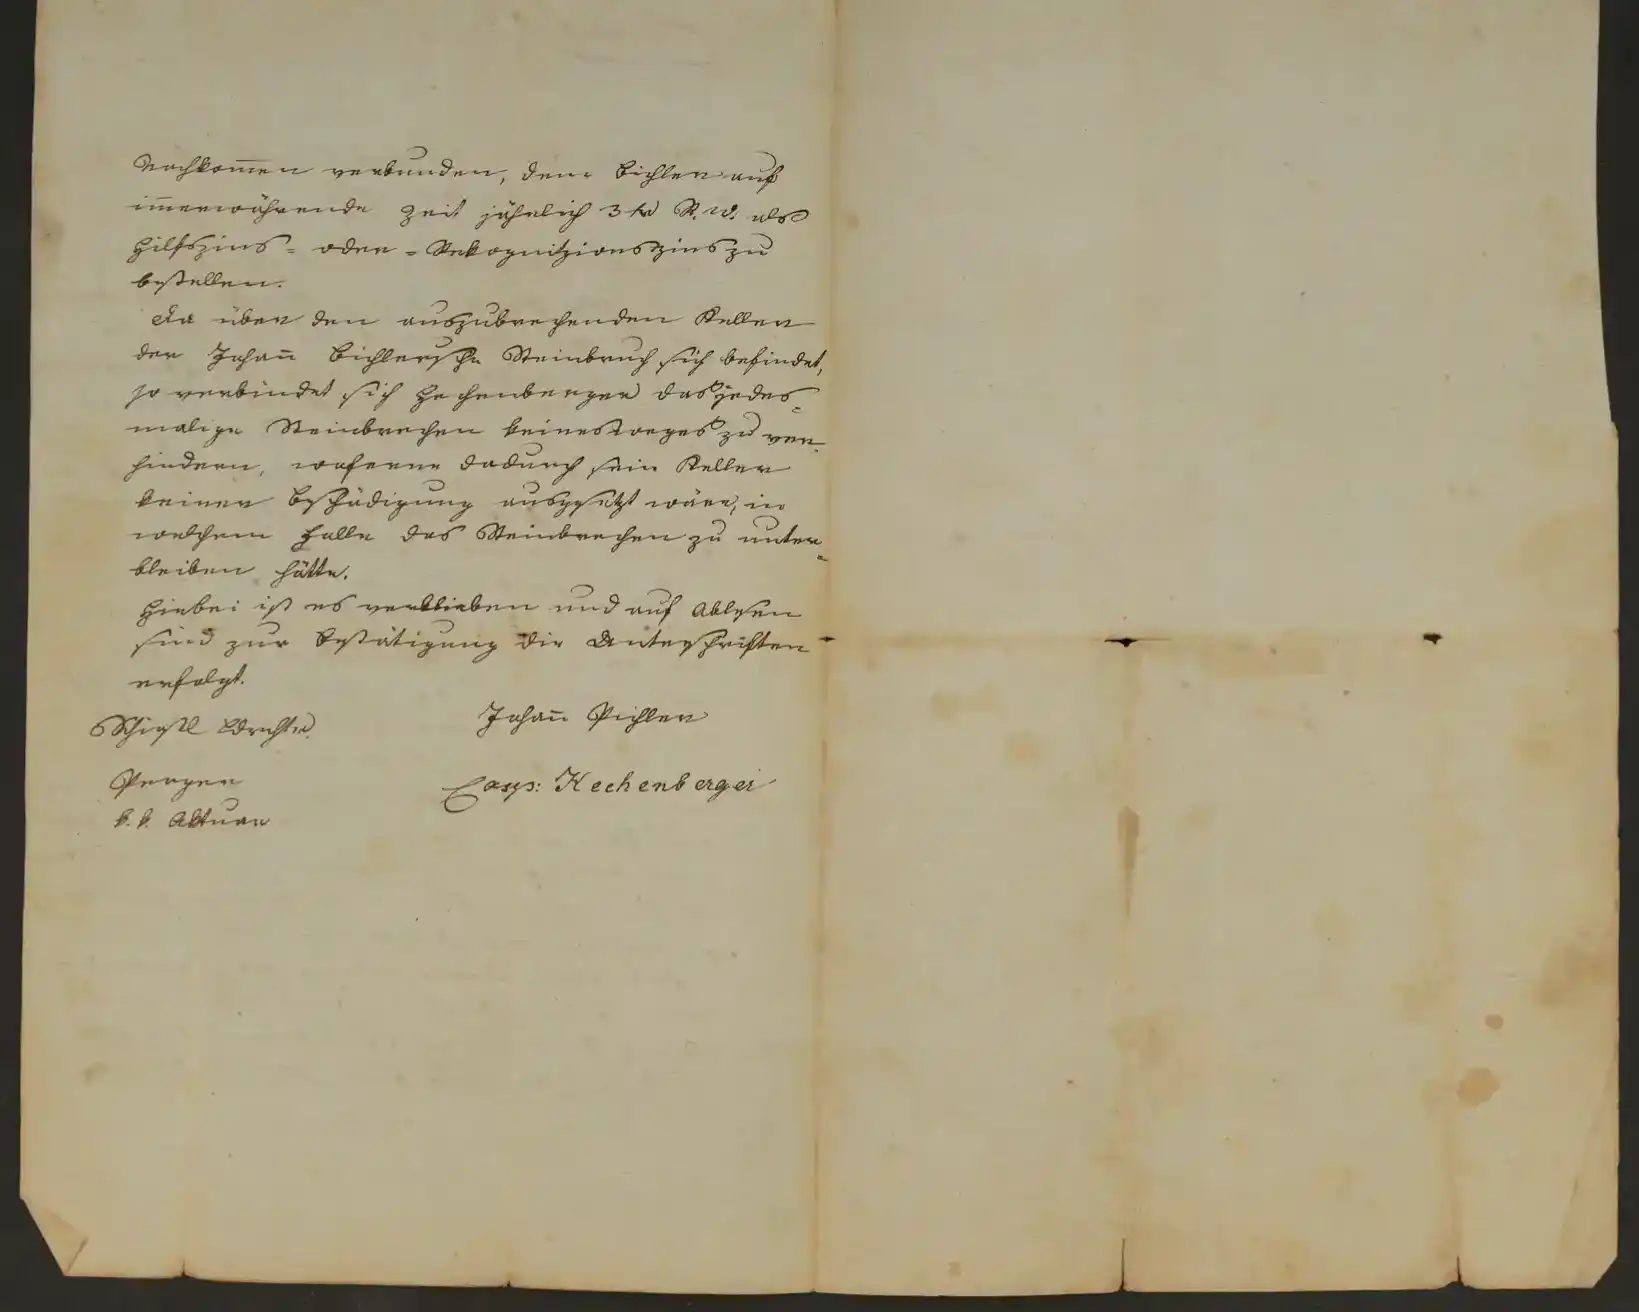 Nachkom̅en verbunden, dem Bichler auf
im̅erwährende Zeit jährlich 3 kr R. W. als
Hilfszins- oder -Rekognitzionszins zu
bestellen.
Da über den auszubrechenden Keller
der Johan̅ Bichlersche Steinbruch sich befindet,
so verbindet sich Hechenberger das jedes-
malige Steinbrechen keineswegs zu ver-
hindern, woferne dadurch sein Keller
keiner Beschädigung ausgesetzt wäre, in
welchem Falle das Steinbrechen zu unter-
bleiben hätte.
Hiebei ist es verblieben und auf Ablesen
sind zur Bestätigung die Unterschriften
erfolgt.
Johan̅ Pichler
Casp: Hechenberger
Perger
k. k. Aktuar